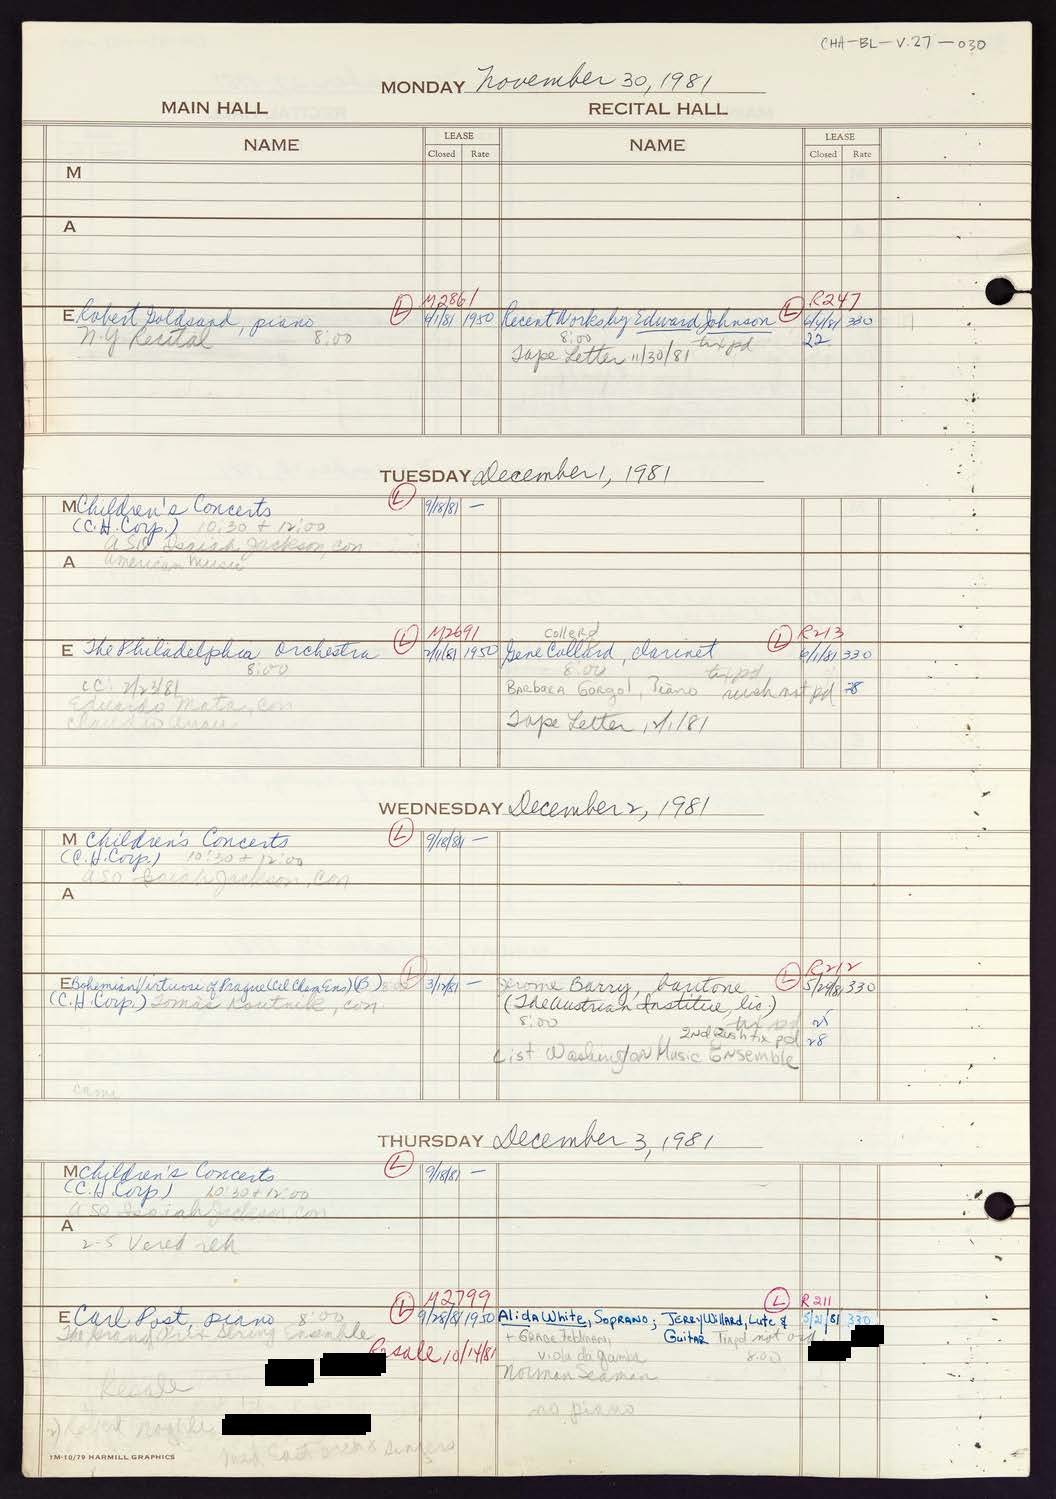 CHA-BL-V.27-030
MONDAY November 30, 1981
MAIN HALL RECITAL HALL
NAME LEASE Closed Rate NAME LEASE Closed Rate
M
A
M2861 R247
E Robert Goldsand, piano L 6/1/81 1950 Recent Works by Edward Johnson L 6/4/81 330
N.Y Recital 8:00 8:00 tix pd 22
Tape Letter 11/30/81
TUESDAY December 1, 1981
M Children's Concerts L 9/18/81 —
(C.H. Corp.) 10:30 + 12:00
ASO Isaiah Jackson, con
A American Music
M2691 Collard R213
E The Philadelphia Orchestra L 2/11/81 1950 Gene Collard, clarinet L 6/1/81 330
8:00 8:00 tix pd
cc: 2/23/81 Barbara Gorgol, Piano rush not pd 28
Eduardo Mata, con
Claudio Arrau
Tape Letter 12/1/81
WEDNESDAY December 2, 1981
M Children's Concerts L 9/18/81 —
(C.H. Corp.) 10:30 + 12:00
ASO Isaiah Jackson, con
A
R212
E Bohemian Virtuosi of Prague (Cel Cham Ens) (B) 8:00 L 3/12/81 — Jerome Barry, baritone L 5/29/81 330
(C.H. Corp.) Tomas Koutnik, con (The Austrian Institue, lic.)
8:00 tix pd 25
2nd Rush tix pd 28
List Washington Music Ensemble
cami
THURSDAY December 3, 1981
M Children's Concerts L 9/18/81 —
(C.H. Corp) 10:30 + 12:00
ASO Isaiah Jackson, con
A
2-5 Vered reh
M2799 R211
E Carl Post, piano 8:00 L 9/28/81 1950 Alida White, Soprano; Jerry Willard, Lute & L 5/21/81 330
The Grand Prix String Ensemble Guitar
+ Grace Feldman,
Resale 10/14/81 viola da gamba 8:00
Resale Norman Seaman
no piano
2) Robert
Singers
1M-10/79 HARMILL GRAPHICS